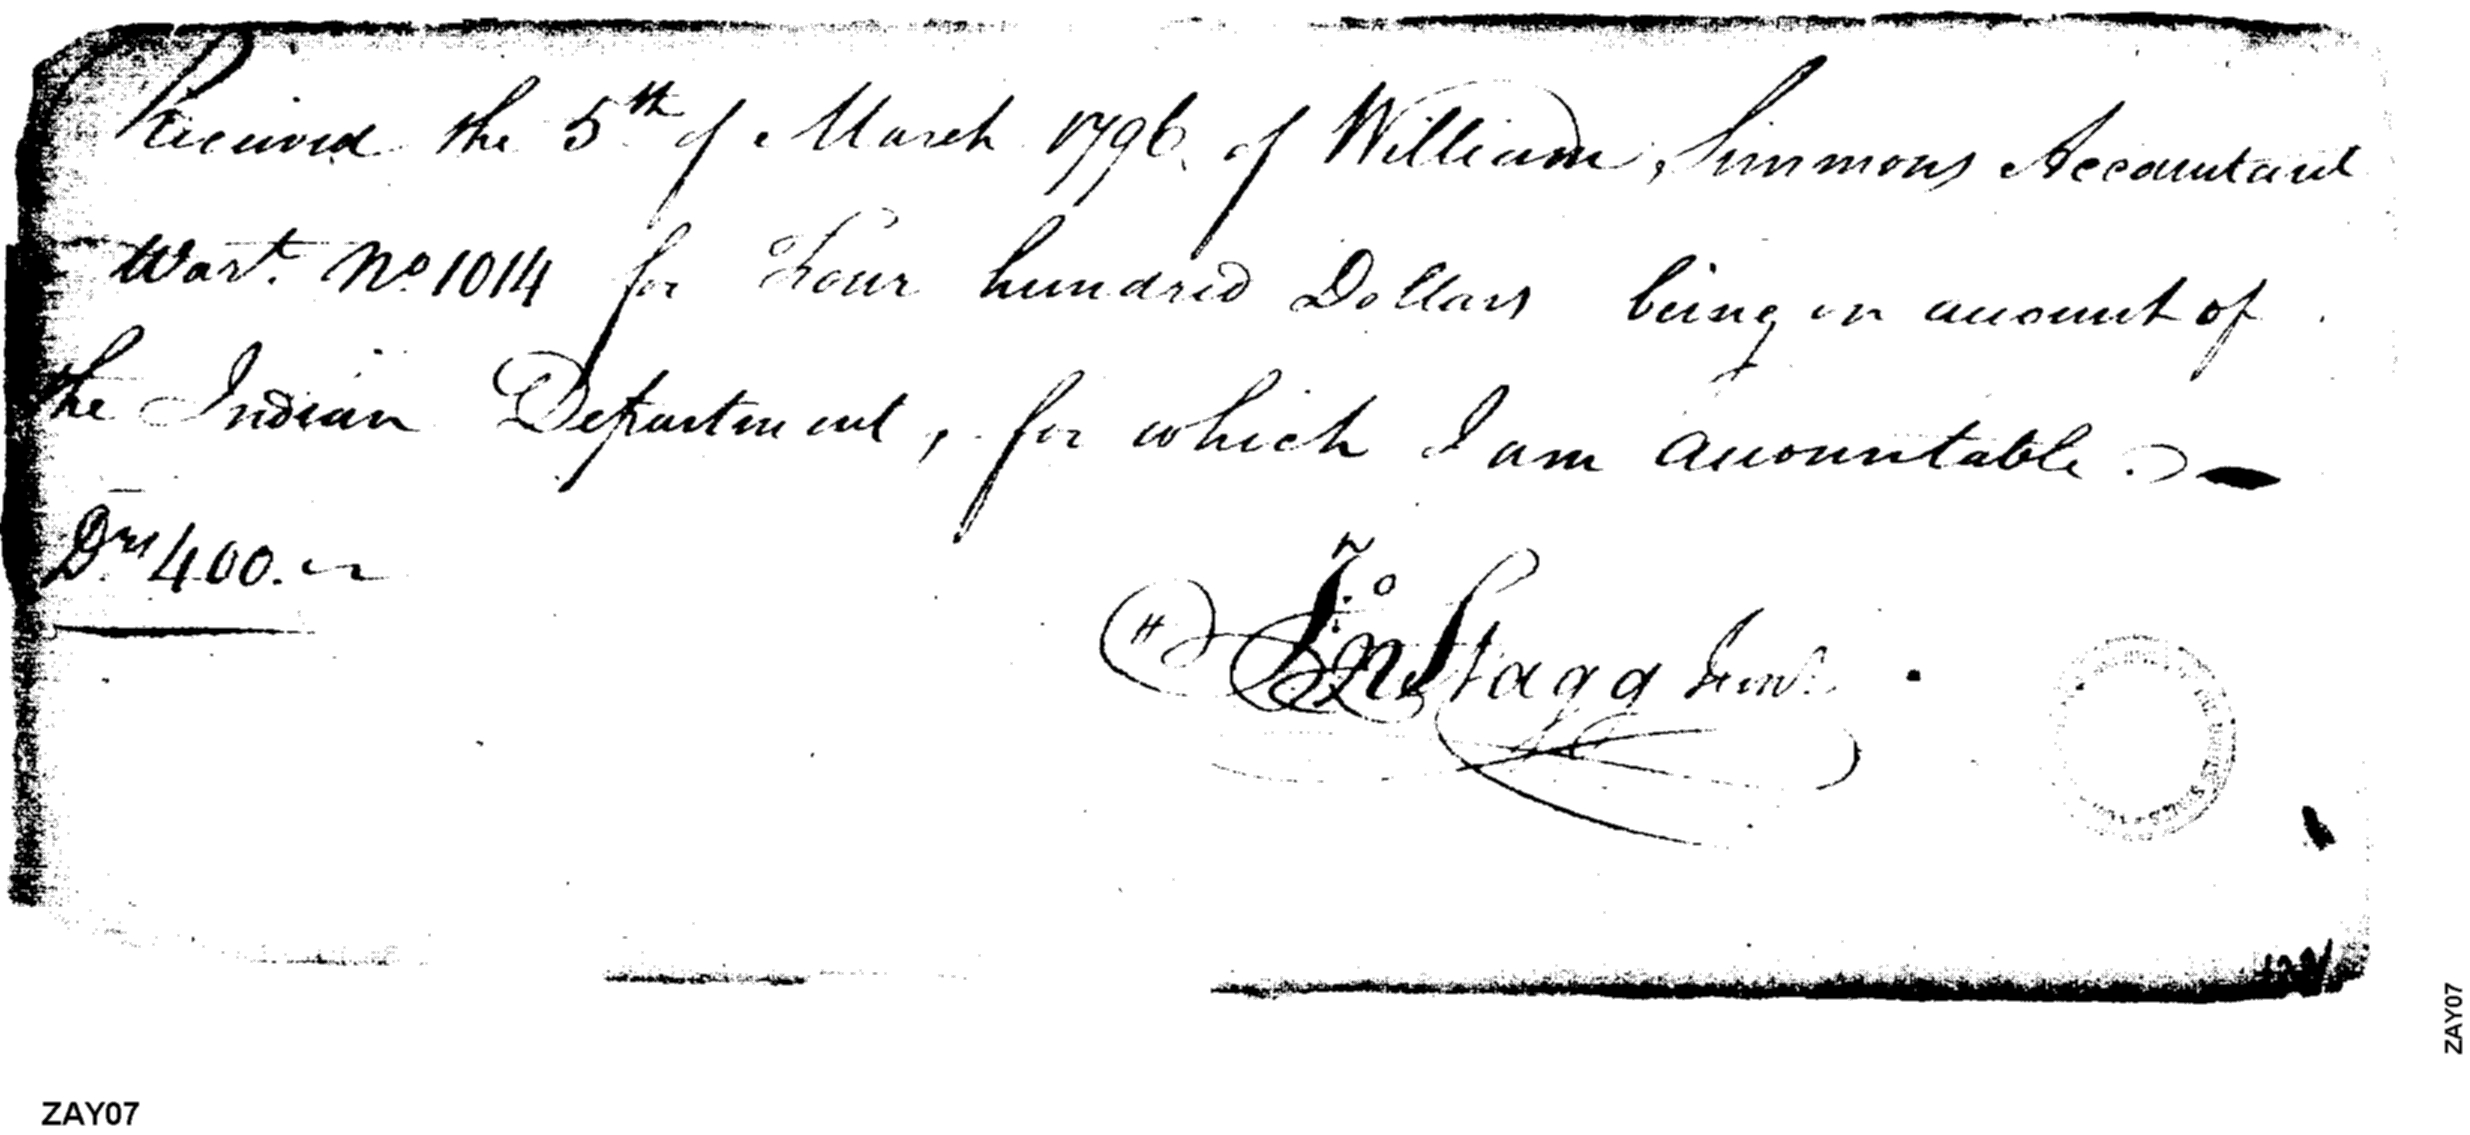 Received the 5th of March 1796 of William Simmons Accountant
Wart. No. 1014 for Four hundred Dollars being on account of
the Indian Department, for which I am accountable.
Drs 400.
Jno Stagg Junr.
ZAY07
ZAY07